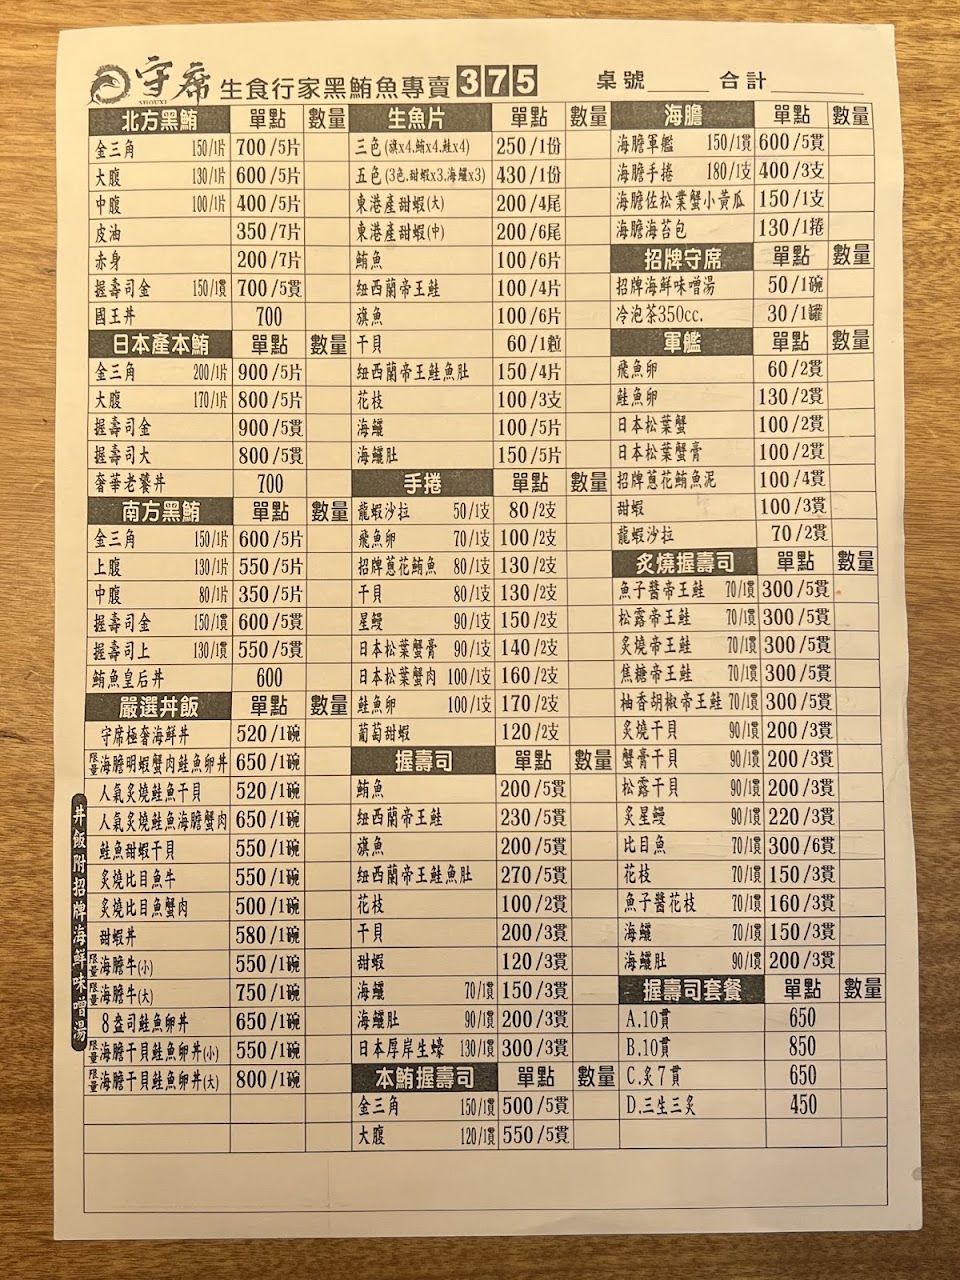 守席 生食行家黑鮪魚專賣375 桌號 合計
SHOUXI
北方黑鮪 單點 數量
金三角 150/1片 700/5片
大腹 130/1片 600/5片
中腹 100/1片 400/5片
皮油 350/7片
赤身 200/7片
握壽司金 150/1貫 700/5貫
國王丼 700
日本產本鮪 單點 數量
金三角 200/1片 900/5片
大腹 170/1片 800/5片
握壽司金 900/5貫
握壽司大 800/5貫
奢華老饕丼 700
南方黑鮪 單點 數量
金三角 150/1片 600/5片
上腹 130/1片 550/5片
中腹 80/1片 350/5片
握壽司金 150/1貫 600/5貫
握壽司上 130/1貫 550/5貫
鮪魚皇后丼 600
嚴選丼飯 單點 數量
守席極奢海鮮丼 520/1碗
限量海膽明蝦蟹肉鮭魚卵丼 650/1碗
人氣炙燒鮭魚干貝 520/1碗
人氣炙燒鮭魚海膽蟹肉 650/1碗
鮭魚甜蝦干貝 550/1碗
炙燒比目魚牛 550/1碗
炙燒比目魚蟹肉 500/1碗
甜蝦丼 580/1碗
限量海膽牛(小) 550/1碗
限量海膽牛(大) 750/1碗
8盎司鮭魚卵丼 650/1碗
限量海膽干貝鮭魚卵丼(小) 550/1碗
限量海膽干貝鮭魚卵丼(大) 800/1碗
丼飯附招牌海鮮味噌湯
生魚片 單點 數量
三色(旗x4.鮪x4.鮭x4) 250/1份
五色(3色.甜蝦x3.海鱺x3) 430/1份
東港產甜蝦(大) 200/4尾
東港產甜蝦(中) 200/6尾
鮪魚 100/6片
紐西蘭帝王鮭 100/4片
旗魚 100/6片
干貝 60/1粒
紐西蘭帝王鮭魚肚 150/4片
花枝 100/3支
海鱺 100/5片
海鱺肚 150/5片
手捲 單點 數量
龍蝦沙拉 50/1支 80/2支
飛魚卵 70/1支 100/2支
招牌蔥花鮪魚 80/1支 130/2支
干貝 80/1支 130/2支
星鰻 90/1支 150/2支
日本松葉蟹膏 90/1支 140/2支
日本松葉蟹肉 100/1支 160/2支
鮭魚卵 100/1支 170/2支
葡萄甜蝦 120/2支
握壽司 單點 數量
鮪魚 200/5貫
紐西蘭帝王鮭 230/5貫
旗魚 200/5貫
紐西蘭帝王鮭魚肚 270/5貫
花枝 100/2貫
干貝 200/3貫
甜蝦 120/3貫
海鱺 70/1貫 150/3貫
海鱺肚 90/1貫 200/3貫
日本厚岸生蠔 130/1貫 300/3貫
本鮪握壽司 單點 數量
金三角 150/1貫 500/5貫
大腹 120/1貫 550/5貫
海膽 單點 數量
海膽軍艦 150/1貫 600/5貫
海膽手捲 180/1支 400/3支
海膽佐松葉蟹小黃瓜 150/1支
海膽海苔包 130/1捲
招牌守席 單點 數量
招牌海鮮味噌湯 50/1碗
冷泡茶350cc. 30/1罐
軍艦 單點 數量
飛魚卵 60/2貫
鮭魚卵 130/2貫
日本松葉蟹 100/2貫
日本松葉蟹膏 100/2貫
招牌蔥花鮪魚泥 100/4貫
甜蝦 100/3貫
龍蝦沙拉 70/2貫
炙燒握壽司 單點 數量
魚子醬帝王鮭 70/1貫 300/5貫
松露帝王鮭 70/1貫 300/5貫
炙燒帝王鮭 70/1貫 300/5貫
焦糖帝王鮭 70/1貫 300/5貫
柚香胡椒帝王鮭 70/1貫 300/5貫
炙燒干貝 90/1貫 200/3貫
蟹膏干貝 90/1貫 200/3貫
松露干貝 90/1貫 200/3貫
炙星鰻 90/1貫 220/3貫
比目魚 70/1貫 300/6貫
花枝 70/1貫 150/3貫
魚子醬花枝 70/1貫 160/3貫
海鱺 70/1貫 150/3貫
海鱺肚 90/1貫 200/3貫
握壽司套餐 單點 數量
A.10貫 650
B.10貫 850
C.炙7貫 650
D.三生三炙 450